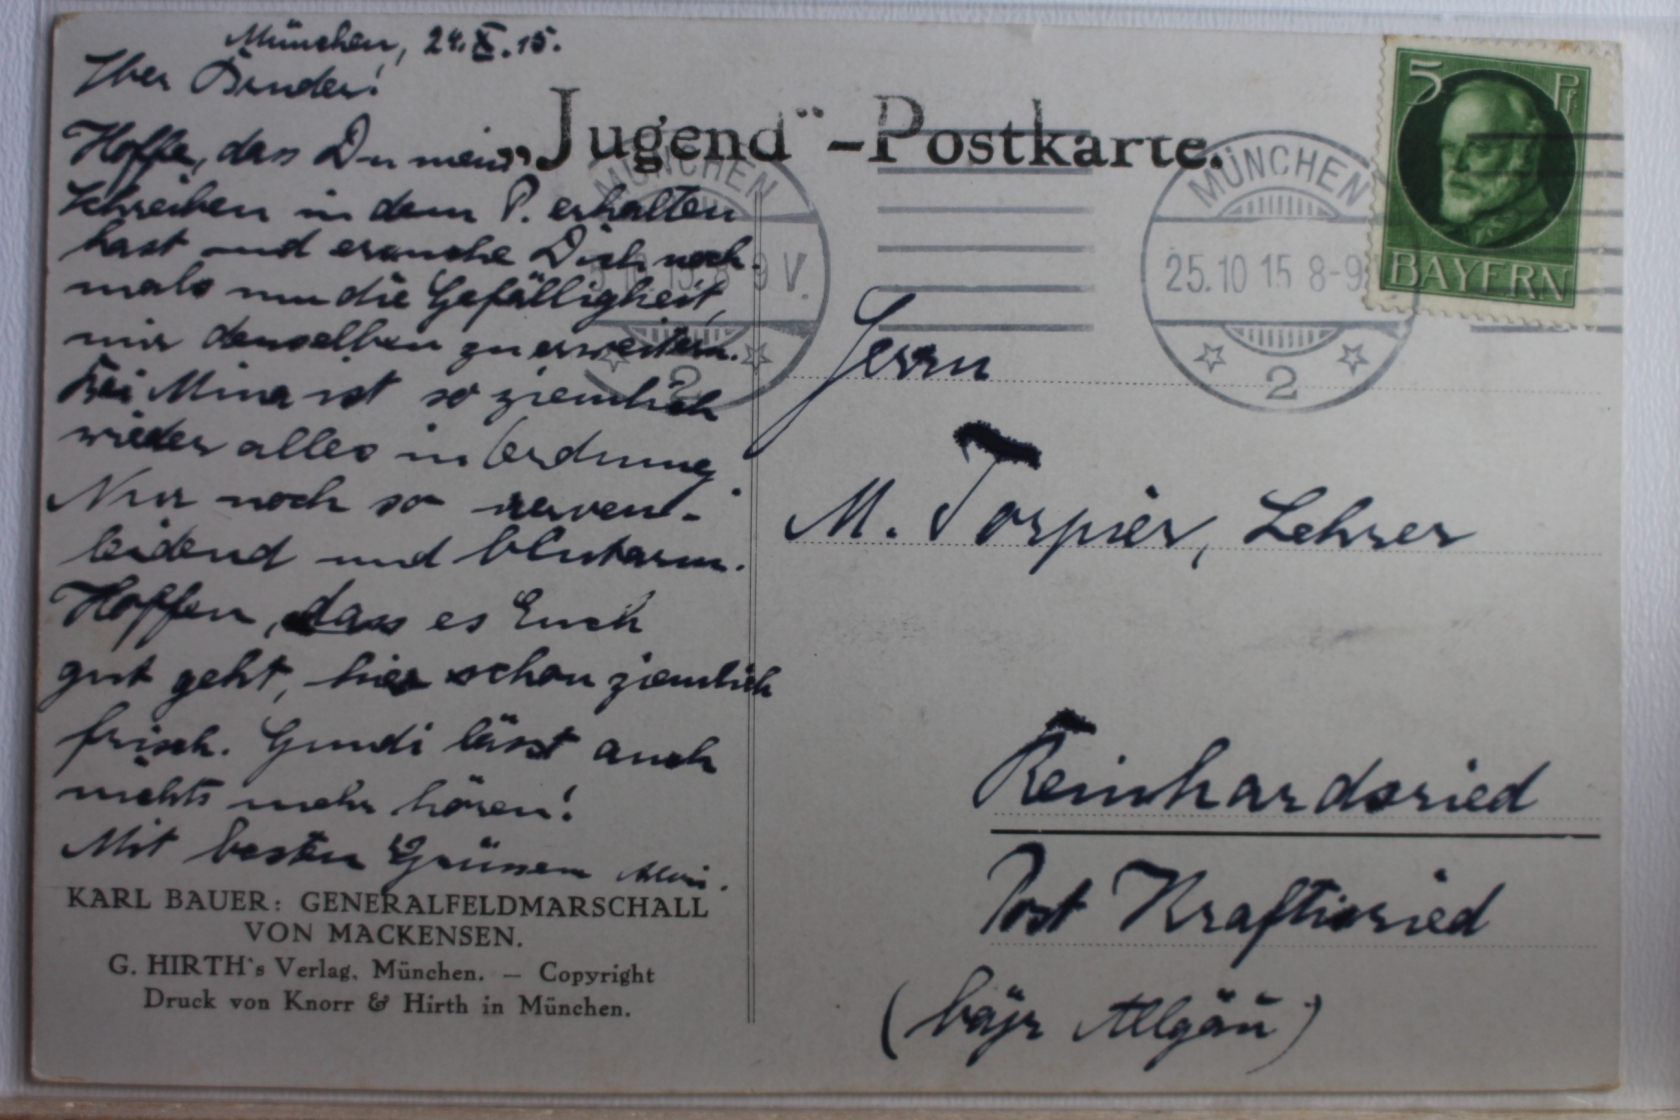 München, 24.X.15.
Lber Bruder!
Hoffe, dass Du mein
Schreiben in dem P. erhalten
hast und ersuche Dich noch-
mals um die Gefälligkeit,
mir denselben zu erweitern.
Bei Mina ist so ziemlich
wieder alles in Ordnung.
Nur noch so nerven-
leidend und blutarm.
Hoffen, dass es Euch
gut geht, hier schon ziemlich
frisch. Gundi lässt auch
nichts mehr hören!
Mit besten Grüssen
KARL BAUER: GENERALFELDMARSCHALL
VON MACKENSEN.
G. HIRTH's Verlag, München. — Copyright
Druck von Knorr & Hirth in München.
„Jugend“-Postkarte.
MÜNCHEN
9 V.
2
MÜNCHEN
25.10 15 8-9
2
5 Pf
BAYERN
Herrn
M. Torpier, Lehrer
Reinhardsried
Post Kraftisried
(bayr Allgäu)